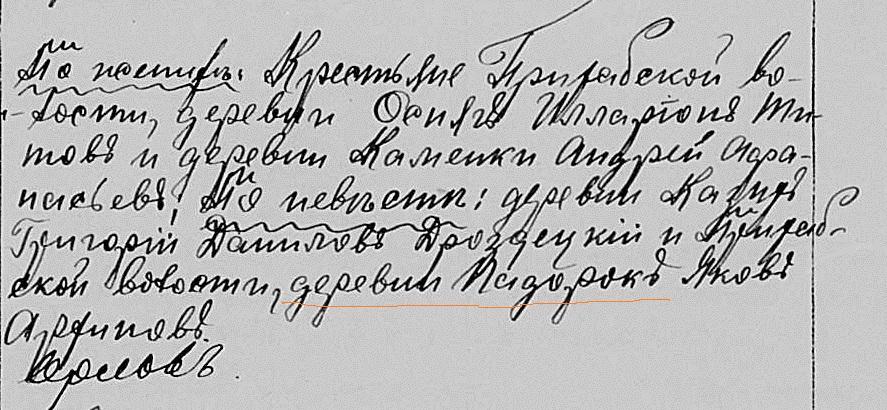 По жениху: Крестьяне Прихабской во-
лости, деревни Осиягъ Илларіонъ Ти-
товъ и деревни Каменки Андрей Афа-
насьевъ; По невѣстѣ: деревни
Григорій Даниловъ Дроздецкій и Прихаб-
ской волости, деревни Надорокъ Яковъ
Архиповъ.
Орловъ.